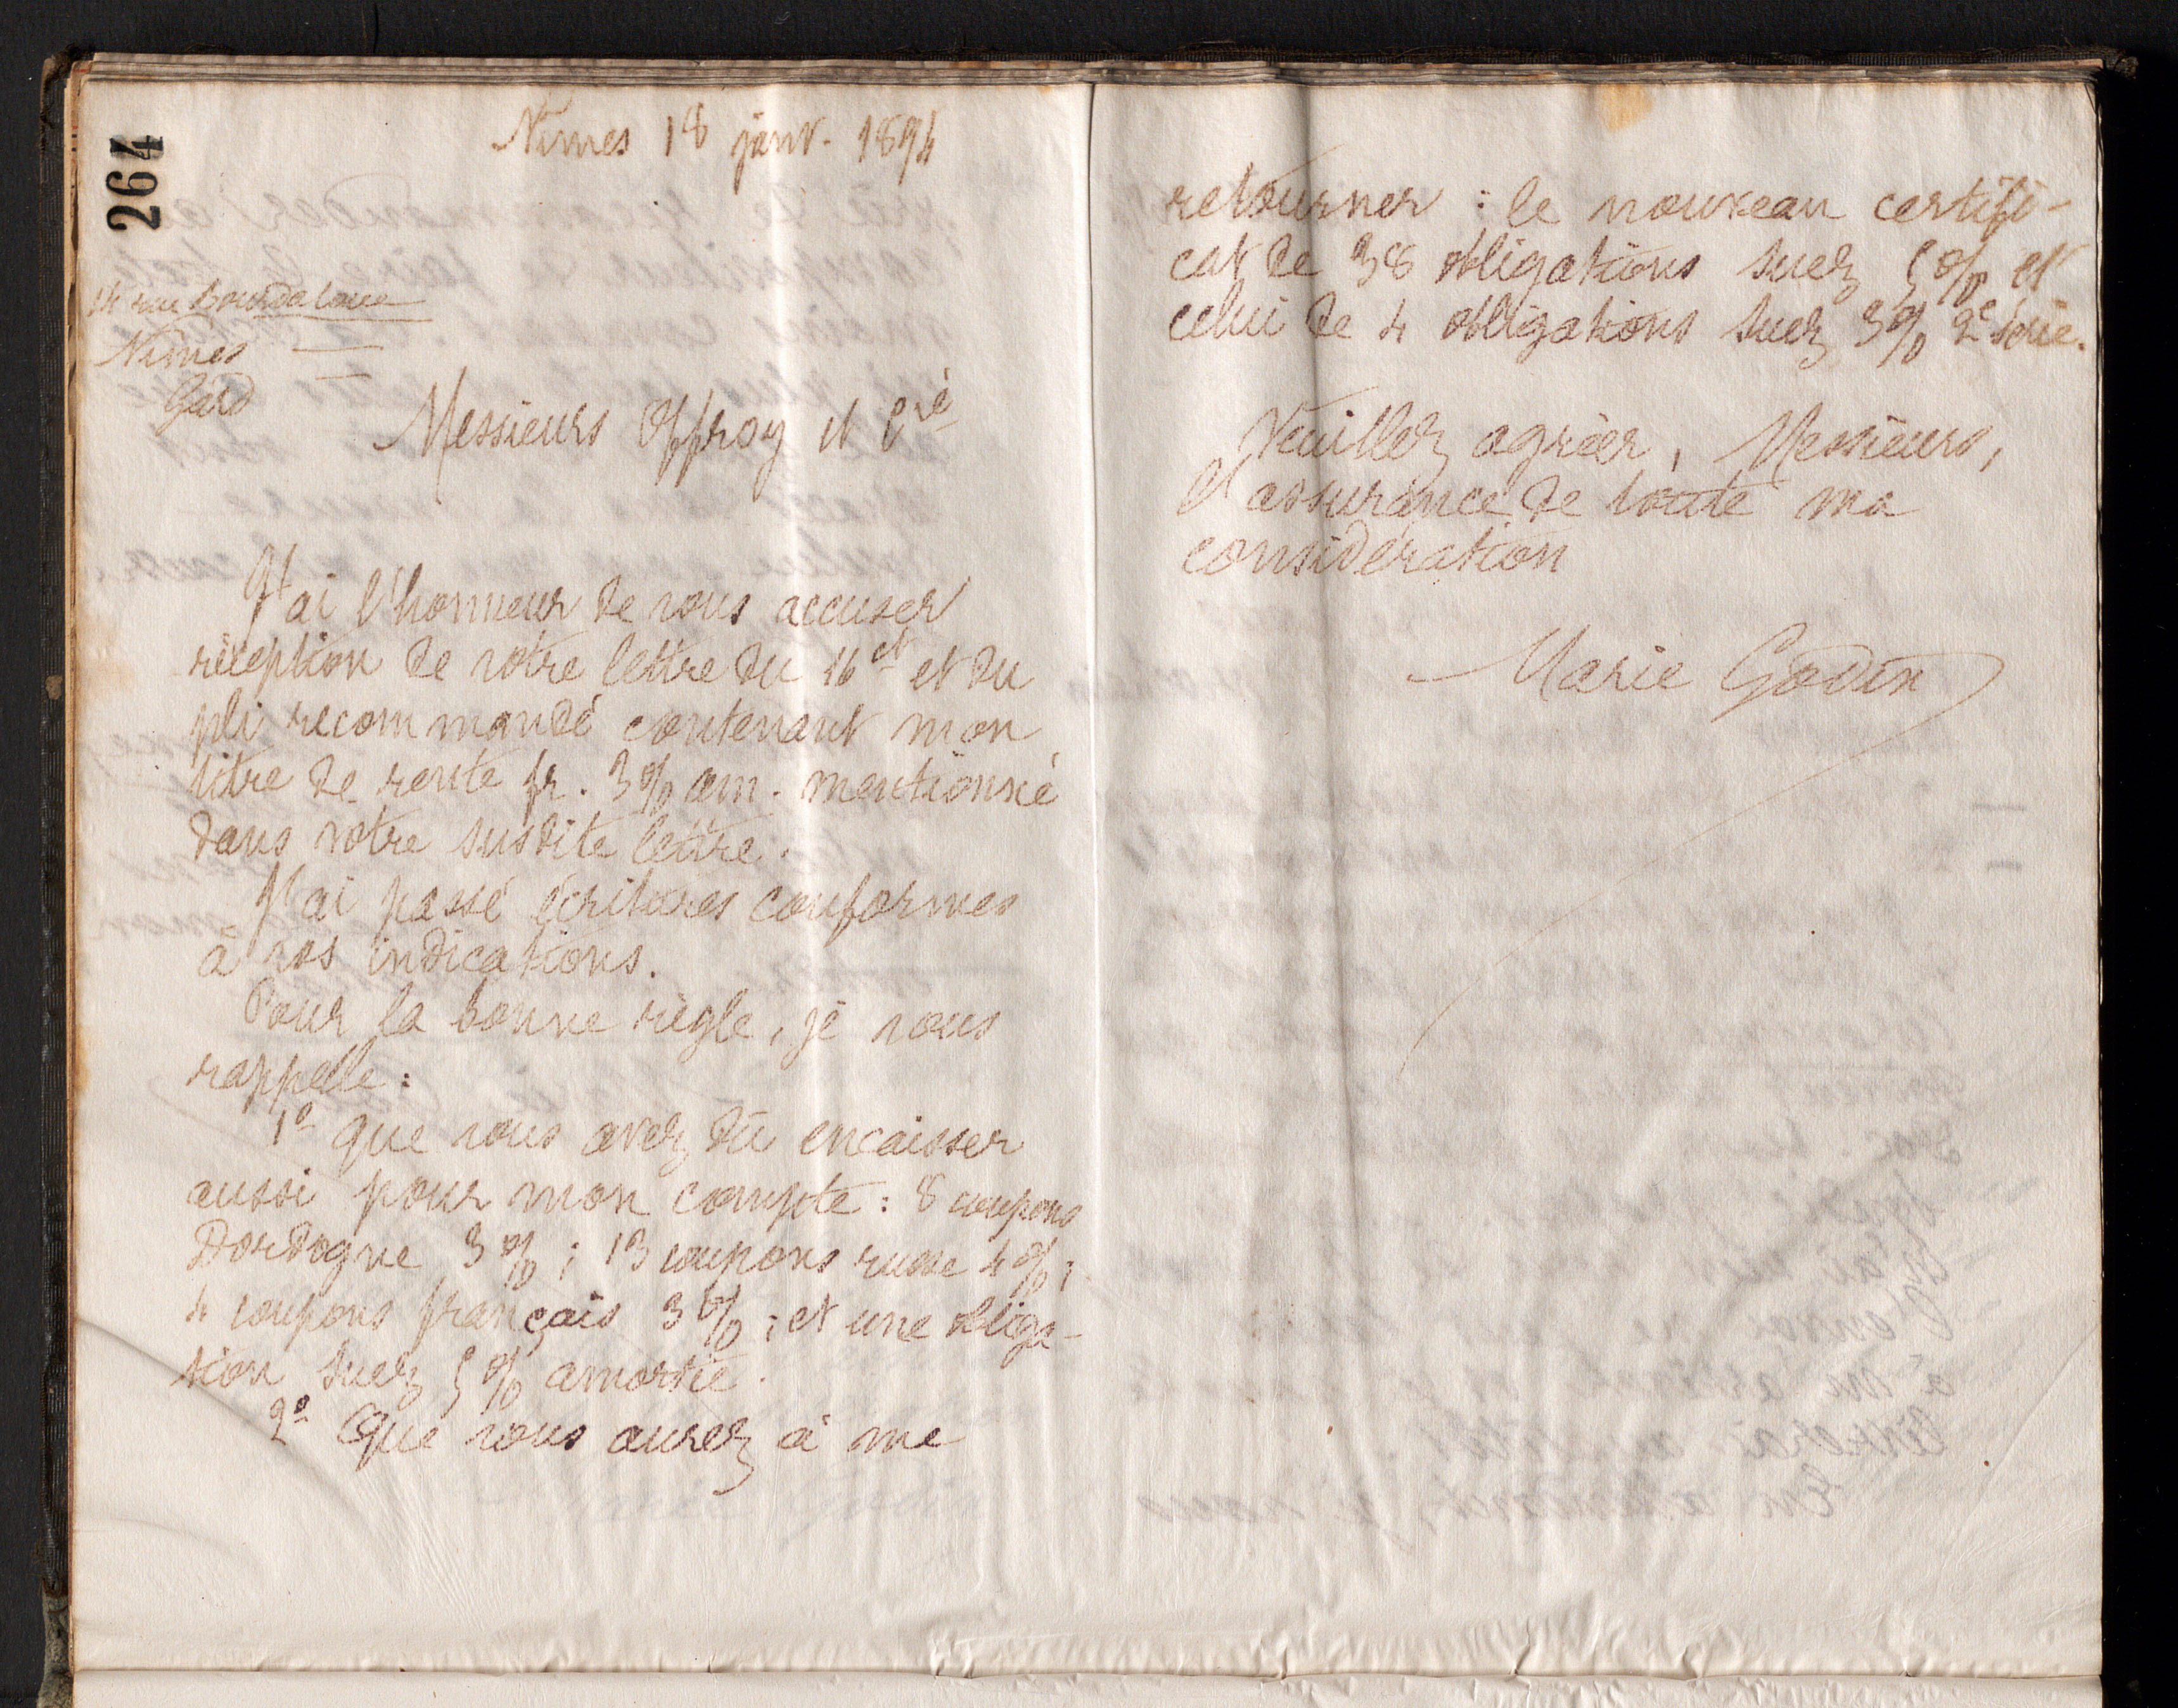 264
Nîmes 18 janv. 1894
14 rue Bourdaloue
Nîmes
Gard
Messieurs Offroy et Cie
J'ai l'honneur de vous accuser
réception de votre lettre du 16 ct et du
pli recommandé contenant mon
titre de rente fr. 3% am. mentionné
dans votre susdite lettre.
J'ai passé écritures conformes
à vos indications.
Pour la bonne règle, je vous
rappelle :
1° que vous avez dû encaisser
aussi pour mon compte : 8 coupons
Dordogne 3% ; 13 coupons russe 4% ;
4 coupons français 3% ; et une obliga-
tion Suez 5% amortie.
2° Que vous aurez à me
retourner : le nouveau certifi-
cat de 38 obligations Suez 5% et
celui de 4 obligations Suez 3% 2e série.
Veuillez agréer, Messieurs,
l'assurance de toute ma
considération
Marie Godin